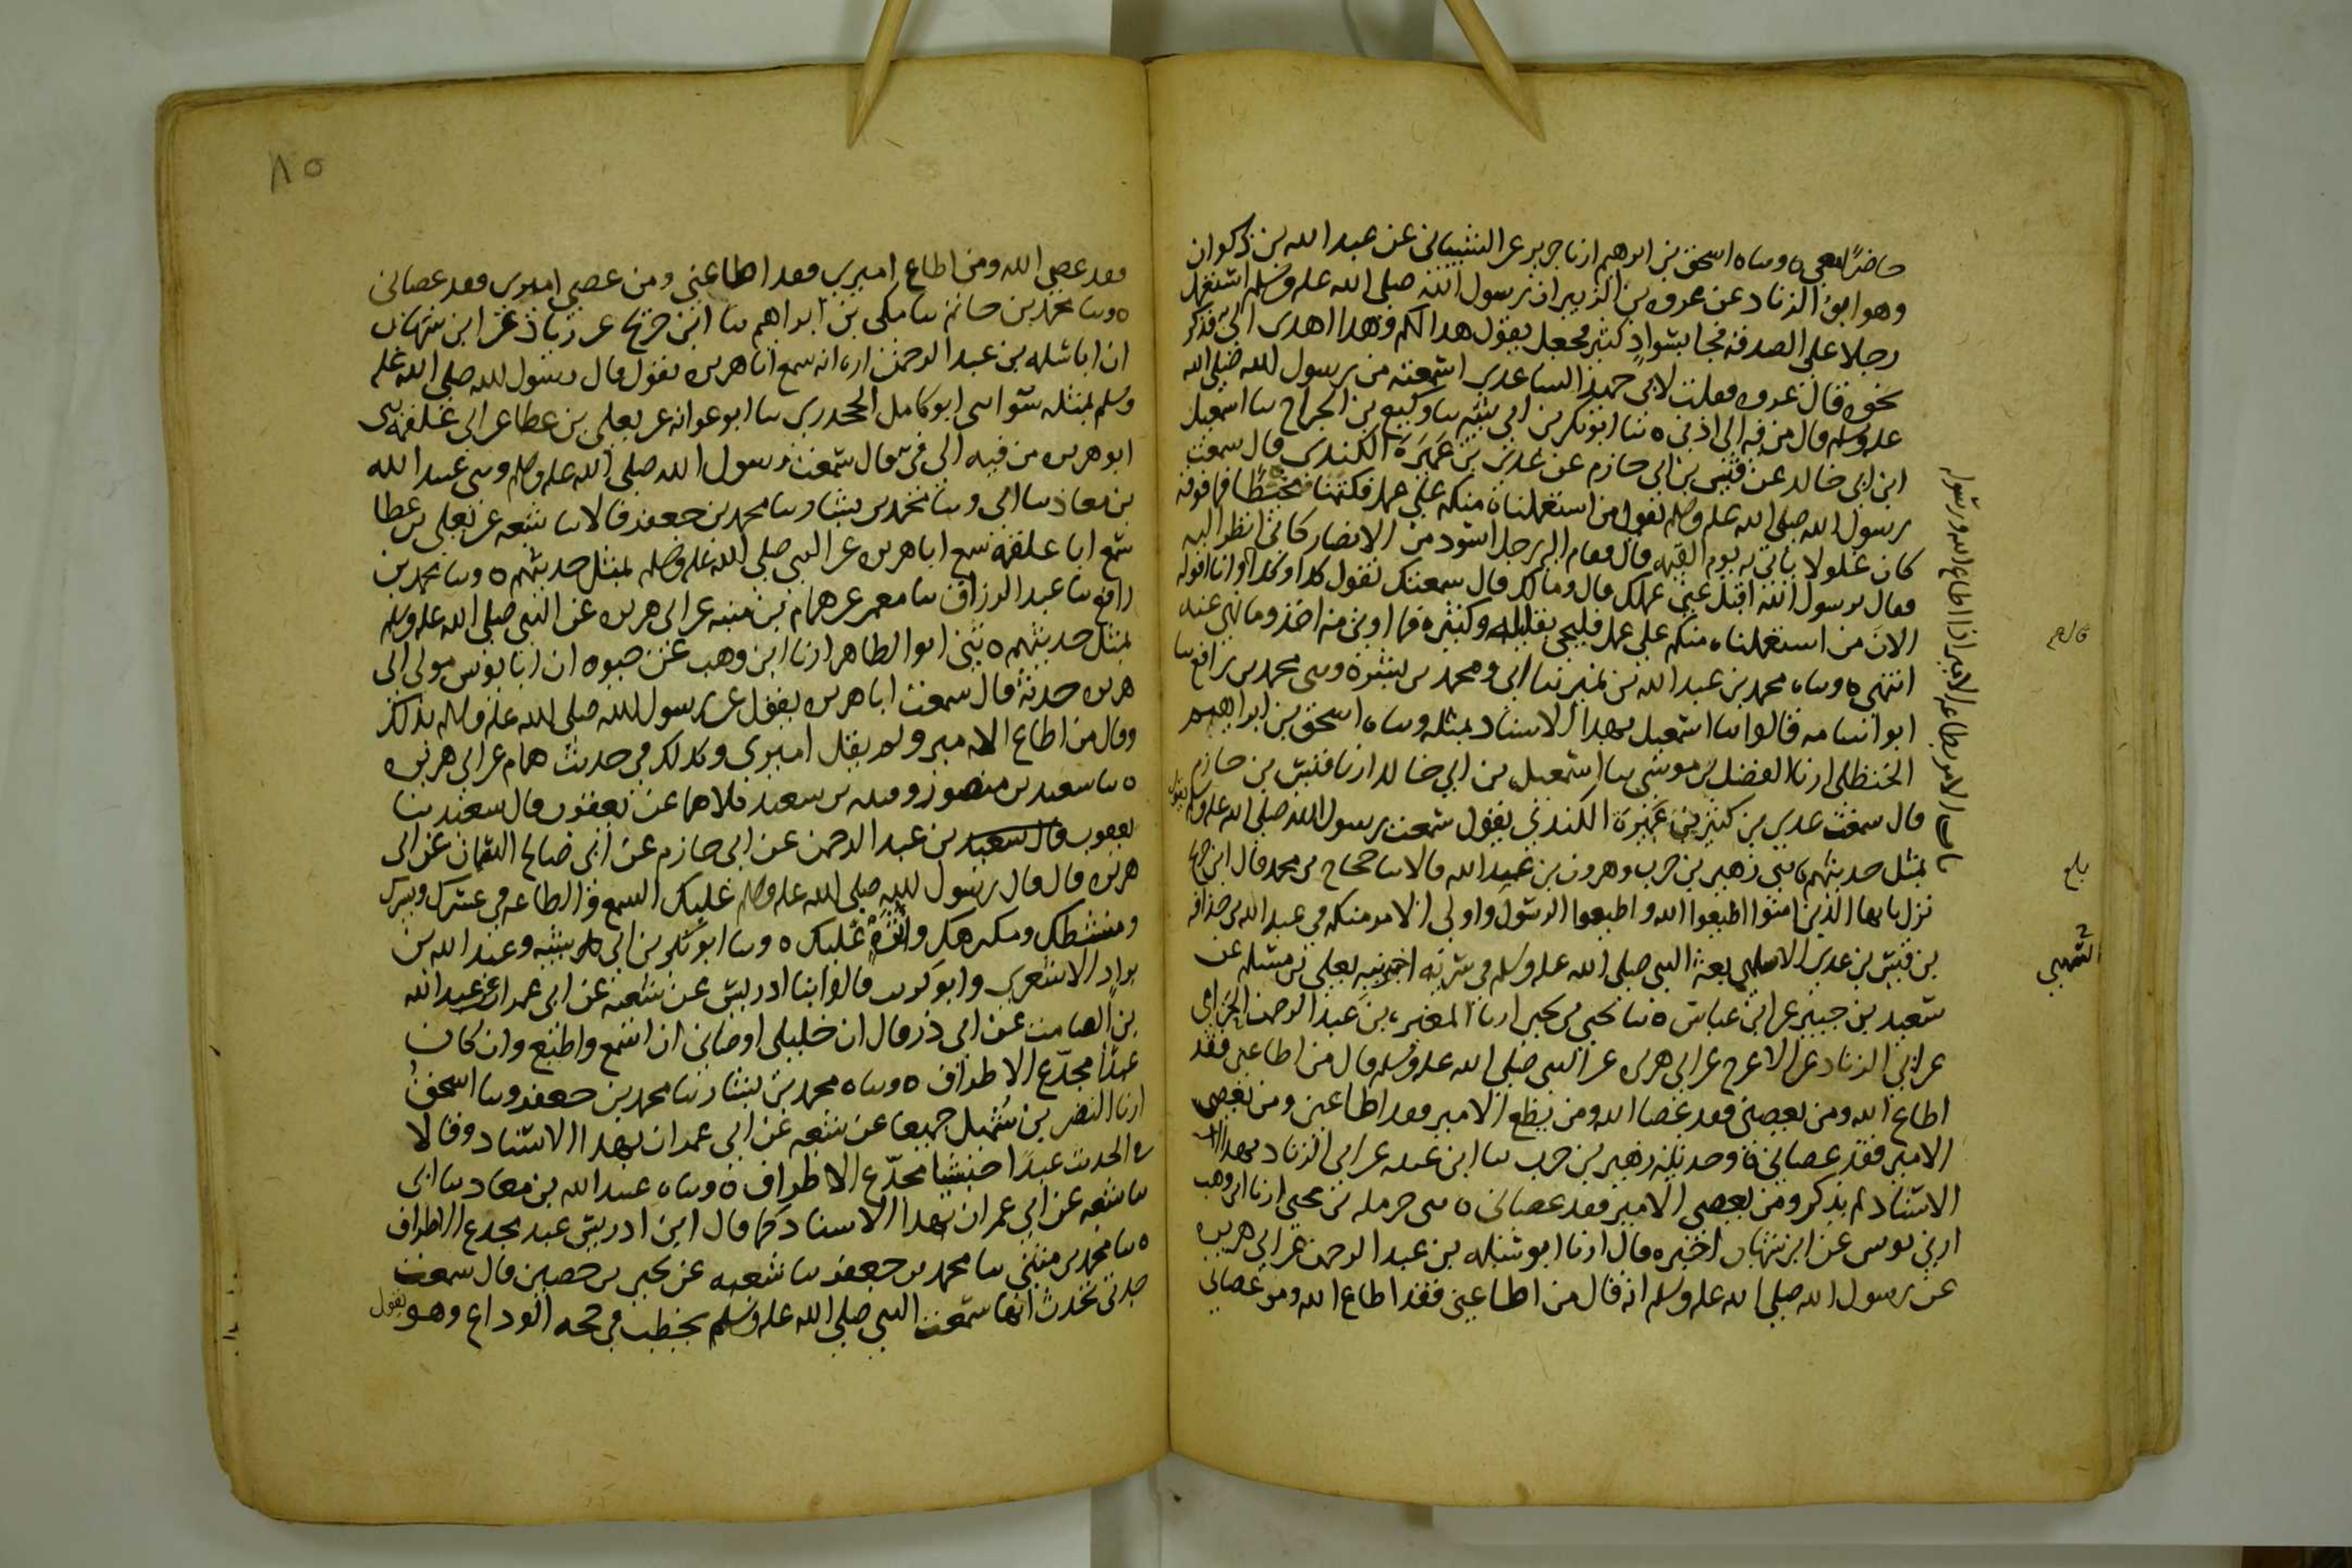 حاضرًا معي ٥ وثناه اسحق بن ابرهيم انا جرير عن الشيباني عن عبد الله بن ذكوان
وهو ابو الزناد عن عروه بن الزبير ان رسول الله صلى الله عليه وسلم استعمل
رجلا على الصدقه فجا بسواد كثير فجعل يقول هدا لكم وهدا اهدى الي فذكر
نحوه قال عروه فقلت لابي حميد الساعدي اسمعته من رسول الله صلى الله
عليه وسلم قال من فيه الى اذني ٥ ثنا ابو بكر بن ابي شيبه ثنا وكيع بن الجراح ثنا اسمعيل
ابن ابي خالد عن قيس بن ابي حازم عن عدي بن عَمِيرَة الكندي قال سمعت
رسول الله صلى الله عليه وسلم يقول من استعملناه منكم على عمل فكتمنا مخيطًا فما فوقه
كان غلولا ياتي به يوم القيمه قال فقام اليه رجل اسود من الانصار كاني انظر اليه
فقال يرسول الله اقبل عني عملك قال وما لك قال سمعتك تقول كدا وكدا قال وانا اقوله
الان من استعملناه منكم على عمل فليجي بقليله وكثيره فما اوتي منه اخذ وما نهي عنه
انتهى ٥ وثناه محمد بن عبد الله بن نمير ثنا ابي ومحمد بن بشر ٥ وثني محمد بن رافع ثنا
ابو اسامه قالوا ثنا اسمعيل بهدا الاسناد بمثله وثناه اسحق بن ابراهيم
الحنظلي انا الفضل بن موسى ثنا اسمعيل بن ابي خالد انا قيس بن حازم
قال سمعت عدي بن عَمِيرَة الكندي يقول سمعت رسول الله صلى الله عليه وسلم يقول
بمثل حديثهم ٥ ثني زهير بن حرب وهرون بن عبد الله قالا ثنا حجاج بن محمد قال ابن جريج
نزل يايها الذين امنوا اطيعوا الله واطيعوا الرسول واولي الامر منكم في عبد الله بن حذافه
بن قيس بن عدي السهمي بعثه النبي صلى الله عليه وسلم في سريه اخبرنيه يعلى بن مسلم عن
سعيد بن جبير عن ابن عباس ٥ ثنا يحيى بن يحيى انا المغيره بن عبد الرحمن الحزامي
عن ابي الزناد عن الاعرج عن ابي هريره عن النبي صلى الله عليه وسلم قال من اطاعني فقد
اطاع الله ومن يعصني فقد عصا الله ومن يطع الامير فقد اطاعني ومن يعصي
الامير فقد عصاني ٥ وحدثنيه زهير بن حرب ثنا ابن عيينه عن ابي الزناد بهدا
الاسناد لم يذكر ومن يعصي الامير فقد عصاني ٥ ثني حرمله بن يحيى انا ابن وهب
اخبرني يونس عن ابن شهاب اخبره قال انا ابو سلمه بن عبد الرحمن عن ابي هريره
عن رسول الله صلى الله عليه وسلم انه قال من اطاعني فقد اطاع الله ومن عصاني
باب الامر بطاعه الامير اذا اطاع الله ورسوله
بلغ
السهمي
٨٥
فقد عصى الله ومن اطاع اميري فقد اطاعني ومن عصى اميري فقد عصاني
٥ وثنا محمد بن حاتم ثنا مكي بن ابراهيم ثنا ابن جريج عن زياد عن ابن شهاب
ان ابا سلمه بن عبد الرحمن اخبره انه سمع ابا هريره يقول قال رسول الله صلى الله عليه
وسلم بمثله سوا ثني ابو كامل الجحدري ثنا ابو عوانه عن يعلى بن عطا عن ابي علقمه ثني
ابو هريره من فيه الى في قال سمعت رسول الله صلى الله عليه وسلم وثني عبيد الله
بن معاذ ثنا ابي وثنا محمد بن بشار ثنا محمد بن جعفر قالا ثنا شعبه عن يعلى بن عطا
سمع ابا علقمه سمع ابا هريره عن النبي صلى الله عليه وسلم بمثل حديثهم ٥ وثنا محمد بن
رافع ثنا عبد الرزاق ثنا معمر عن همام بن منبه عن ابي هريره عن النبي صلى الله عليه وسلم
بمثل حديثهم ٥ ثني ابو الطاهر انا ابن وهب عن حيوه ان ابا يونس مولى ابي
هريره حدثه قال سمعت ابا هريره يقول عن رسول الله صلى الله عليه وسلم بذلك
وقال من اطاع الامير ولم يقل اميري وكدلك في حديث همام عن ابي هريره
٥ ثنا سعيد بن منصور وقتيبه بن سعيد كلاهما عن يعقوب قال سعيد ثنا
يعقوب بن عبد الرحمن عن ابي حازم عن ابي صالح السمان عن ابي
هريره قال قال رسول الله صلى الله عليه وسلم عليك السمع والطاعه في عسرك ويسرك
ومنشطك ومكرهك واثره عليك ٥ وثنا ابو بكر بن ابي شيبه وعبد الله بن
براد الاشعري وابو كريب قالوا ثنا ابن ادريس عن شعبه عن ابي عمران عن عبد الله
بن الصامت عن ابي ذر قال ان خليلي اوصاني ان اسمع واطيع وان كان
عبدًا مجدّع الاطراف ٥ وثناه محمد بن بشار ثنا محمد بن جعفر وثنا اسحق
انا النضر بن شُميل جميعا عن شعبه عن ابي عمران بهدا الاسناد وقالا
في الحديث عبدًا حبشيا مجدّع الاطراف ٥ وثناه عبيد الله بن معاد ثنا ابي
ثنا شعبه عن ابي عمران بهدا الاسناد كما قال ابن ادريس عبد مجدع الاطراف
٥ ثنا محمد بن مثنى ثنا محمد بن جعفر ثنا شعبه عن يحيى بن حصين قال سمعت
جدتي تحدث انها سمعت النبي صلى الله عليه وسلم يخطب في حجه الوداع وهو يقول